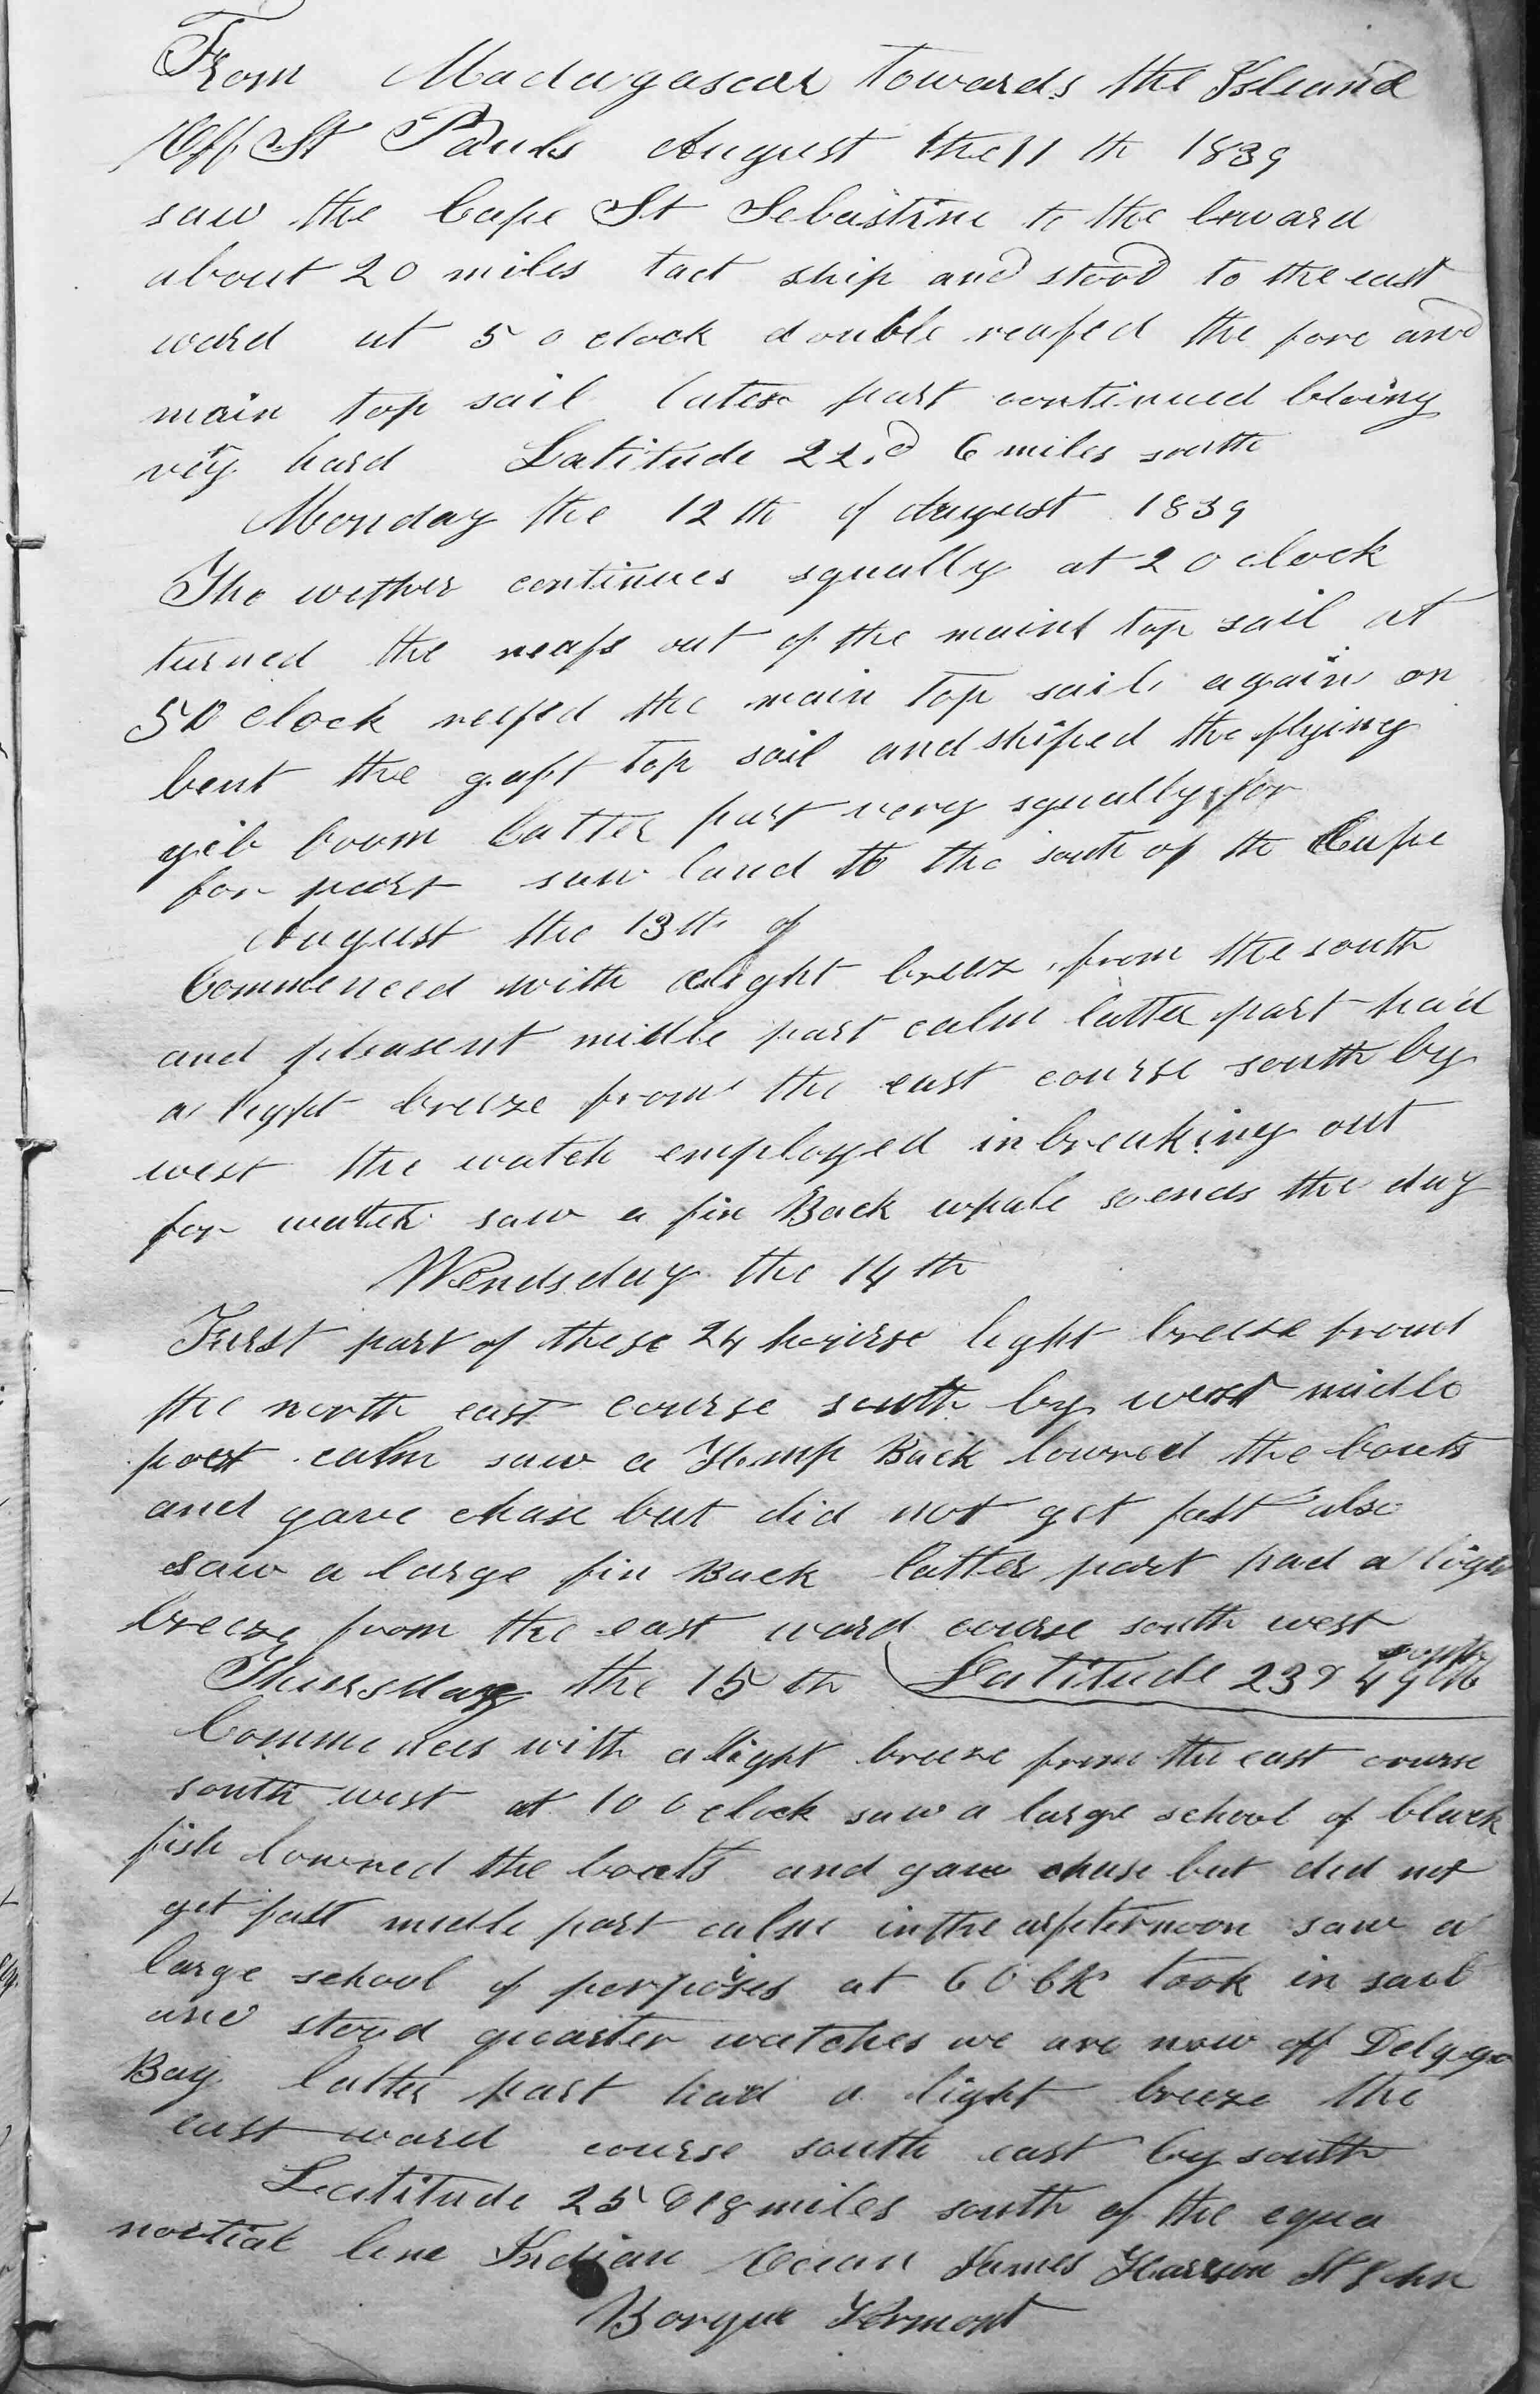 From Madagascar towards the Island
Off St Pauls August the 11 th 1839
saw the Cape St Sebastine to the leward
about 20 miles tact ship and stood to the east
ward at 5 o clock double reafed the fore and
main top sail later part continued bloing
very hard Latitude 22 d 6 miles south
Monday the 12 th of August 1839
The wether continues squally at 2 o clock
turned the reafs out of the main top sail at
5 O clock reefed the main top sail again on
bent the gaft top sail and shiped the flying
gib boom latter part very squally for
for part saw land to the south of the Cape
August the 13th of
Commenced with alight breez from the south
and pleasent midle part calm latter part had
a light breeze from the east course south by
west the watch employed in breaking out
for water saw a fin Back whale so ends the day
Wendsday the 14 th
First part of these 24 hours light breeze from
the north east course south by west midle
part calm saw a Hump Back lowred the boats
and gave chase but did not get fast also
saw a large fin Back latter part had a ligh
breeze from the east ward course south west
Thursday the 15 th Latitude 23 d 49 m south
Commences with alight breeze from the east course
south west at 10 O clock saw a large school of black
fish lowred the boats and gave chase but did not
get fast midle part calm in the arfternoon saw a
large school of porpoises at 6 O Ck took in sail
and stood quarter watches we are now off Delagga
Bay latter part had a light breeze the
east ward course south east by south
Latitude 25 D 18 miles south of the equa
noctial line Indian Ocean James Harson St John
Borque Vermont